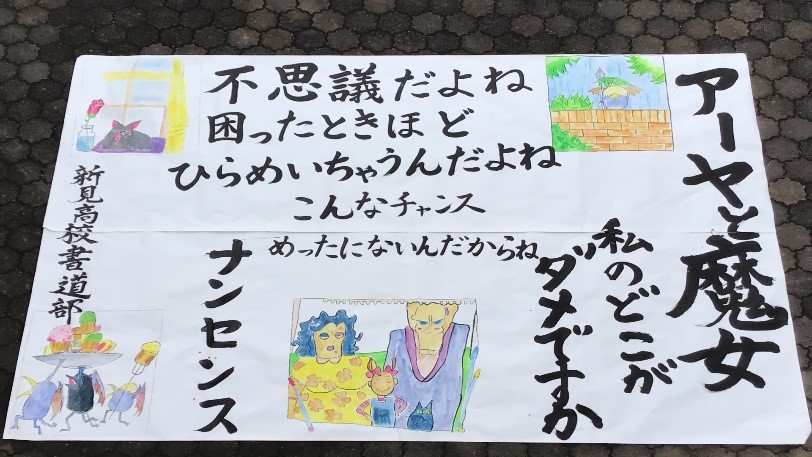 アーヤと魔女
私のどこが
ダメですか
不思議だよね
困ったときほど
ひらめいちゃうんだよね
こんなチャンス
めったにないんだからね
ナンセンス
新見高校書道部